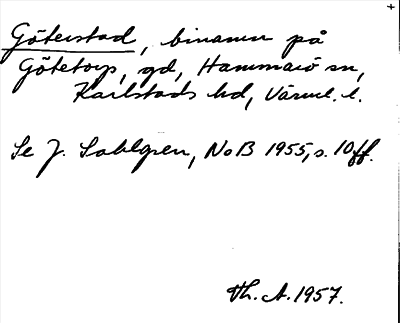 Göterstad, binamn på
Götetorp, gd, Hammarö sn,
Karlstads hd, Värml. l.
Se J. Sahlgren, NoB 1955, s. 10ff.
Th. A. 1957.